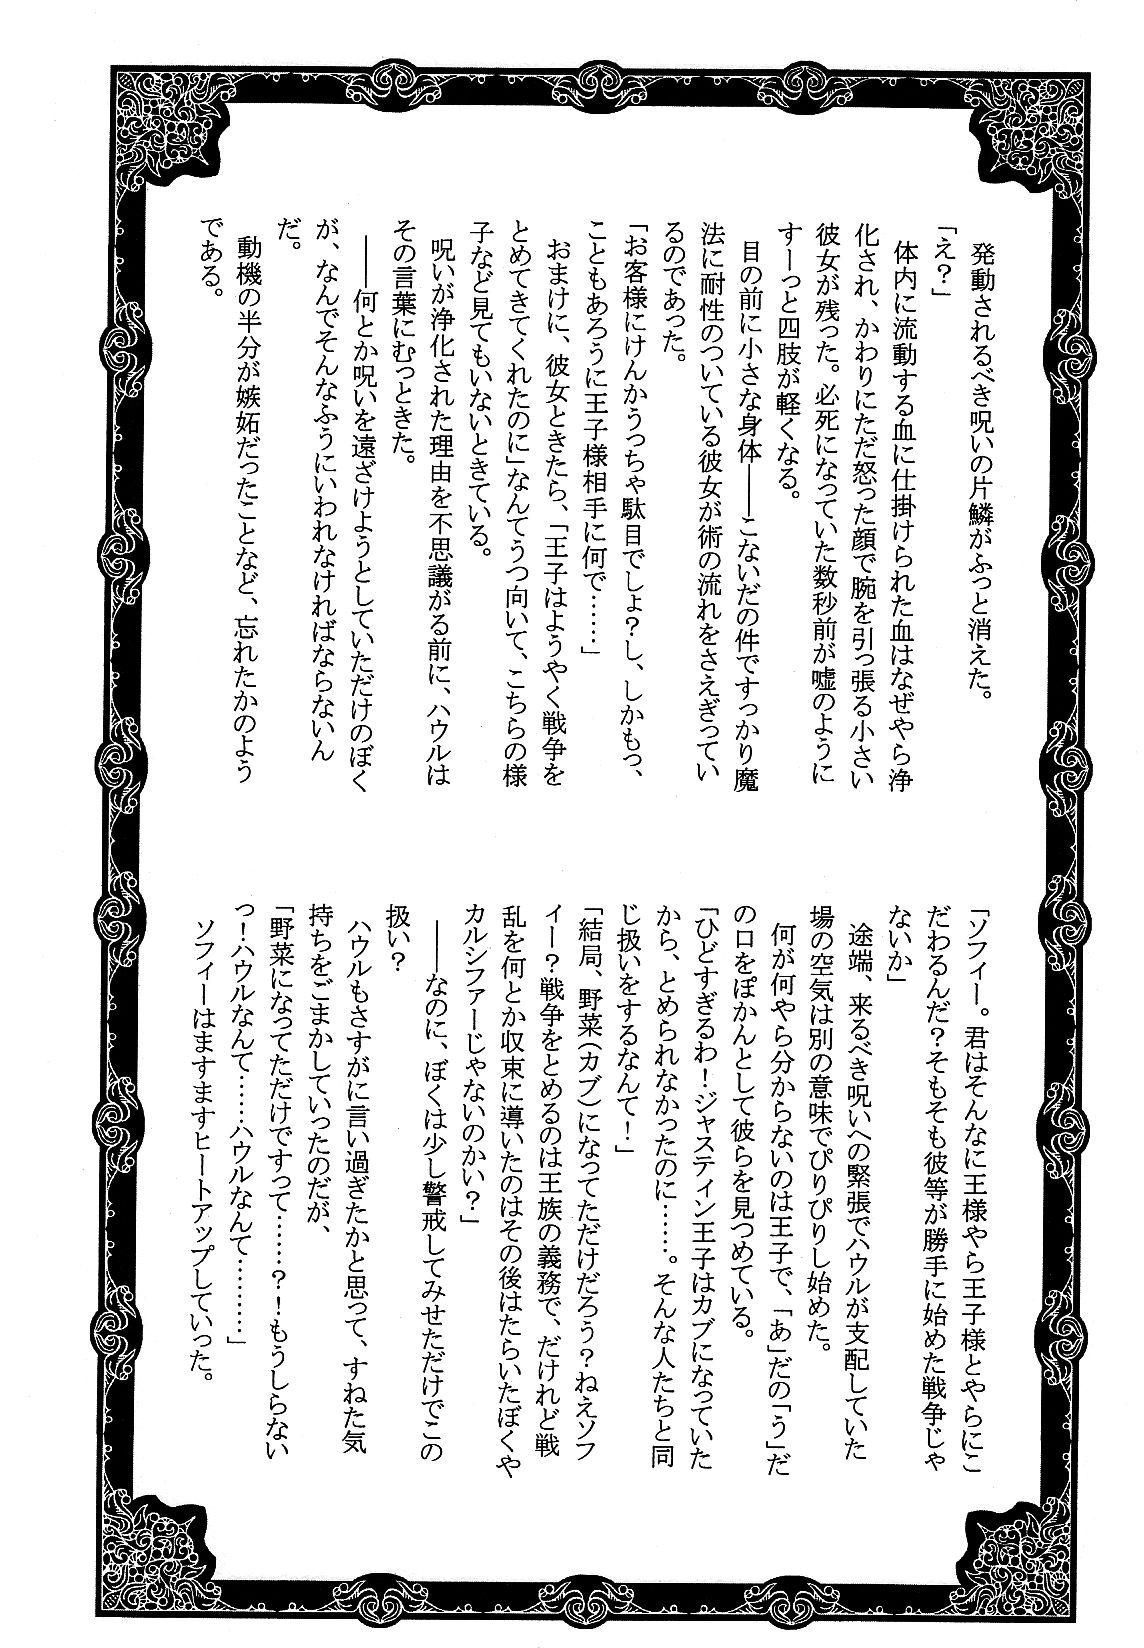 発動されるべき呪いの片鱗がふっと消えた。
「え？」
　体内に流動する血に仕掛けられた血はなぜやら浄
化され、かわりにただ怒った顔で腕を引っ張る小さい
彼女が残った。必死になっていた数秒前が嘘のように
すーっと四肢が軽くなる。
　目の前に小さな身体――こないだの件ですっかり魔
法に耐性のついている彼女が術の流れをさえぎってい
るのであった。
「お客様にけんかうっちゃ駄目でしょ？し、しかもっ、
こともあろうに王子様相手に何で……」
　おまけに、彼女ときたら、「王子はようやく戦争を
とめてきてくれたのに」なんてうつ向いて、こちらの様
子など見てもいないときている。
　呪いが浄化された理由を不思議がる前に、ハウルは
その言葉にむっときた。
　――何とか呪いを遠ざけようとしていただけのぼく
が、なんでそんなふうにいわれなければならないん
だ。
　動機の半分が嫉妬だったことなど、忘れたかのよう
である。
「ソフィー。君はそんなに王様やら王子様とやらにこ
だわるんだ？そもそも彼等が勝手に始めた戦争じゃ
ないか」
　途端、来るべき呪いへの緊張でハウルが支配していた
場の空気は別の意味でぴりぴりし始めた。
　何が何やら分からないのは王子で、「あ」だの「う」だ
の口をぽかんとして彼らを見つめている。
「ひどすぎるわ！ジャスティン王子はカブになっていた
から、とめられなかったのに……。そんな人たちと同
じ扱いをするなんて！」
「結局、野菜（カブ）になってただけだろう？ねえソフ
ィー？戦争をとめるのは王族の義務で、だけれど戦
乱を何とか収束に導いたのはその後はたらいたぼくや
カルシファーじゃないのかい？」
　――なのに、ぼくは少し警戒してみせただけでこの
扱い？
　ハウルもさすがに言い過ぎたかと思って、すねた気
持ちをごまかしていったのだが、
「野菜になってただけですって……？！もうしらない
っ！ハウルなんて……ハウルなんて………」
　ソフィーはますますヒートアップしていった。